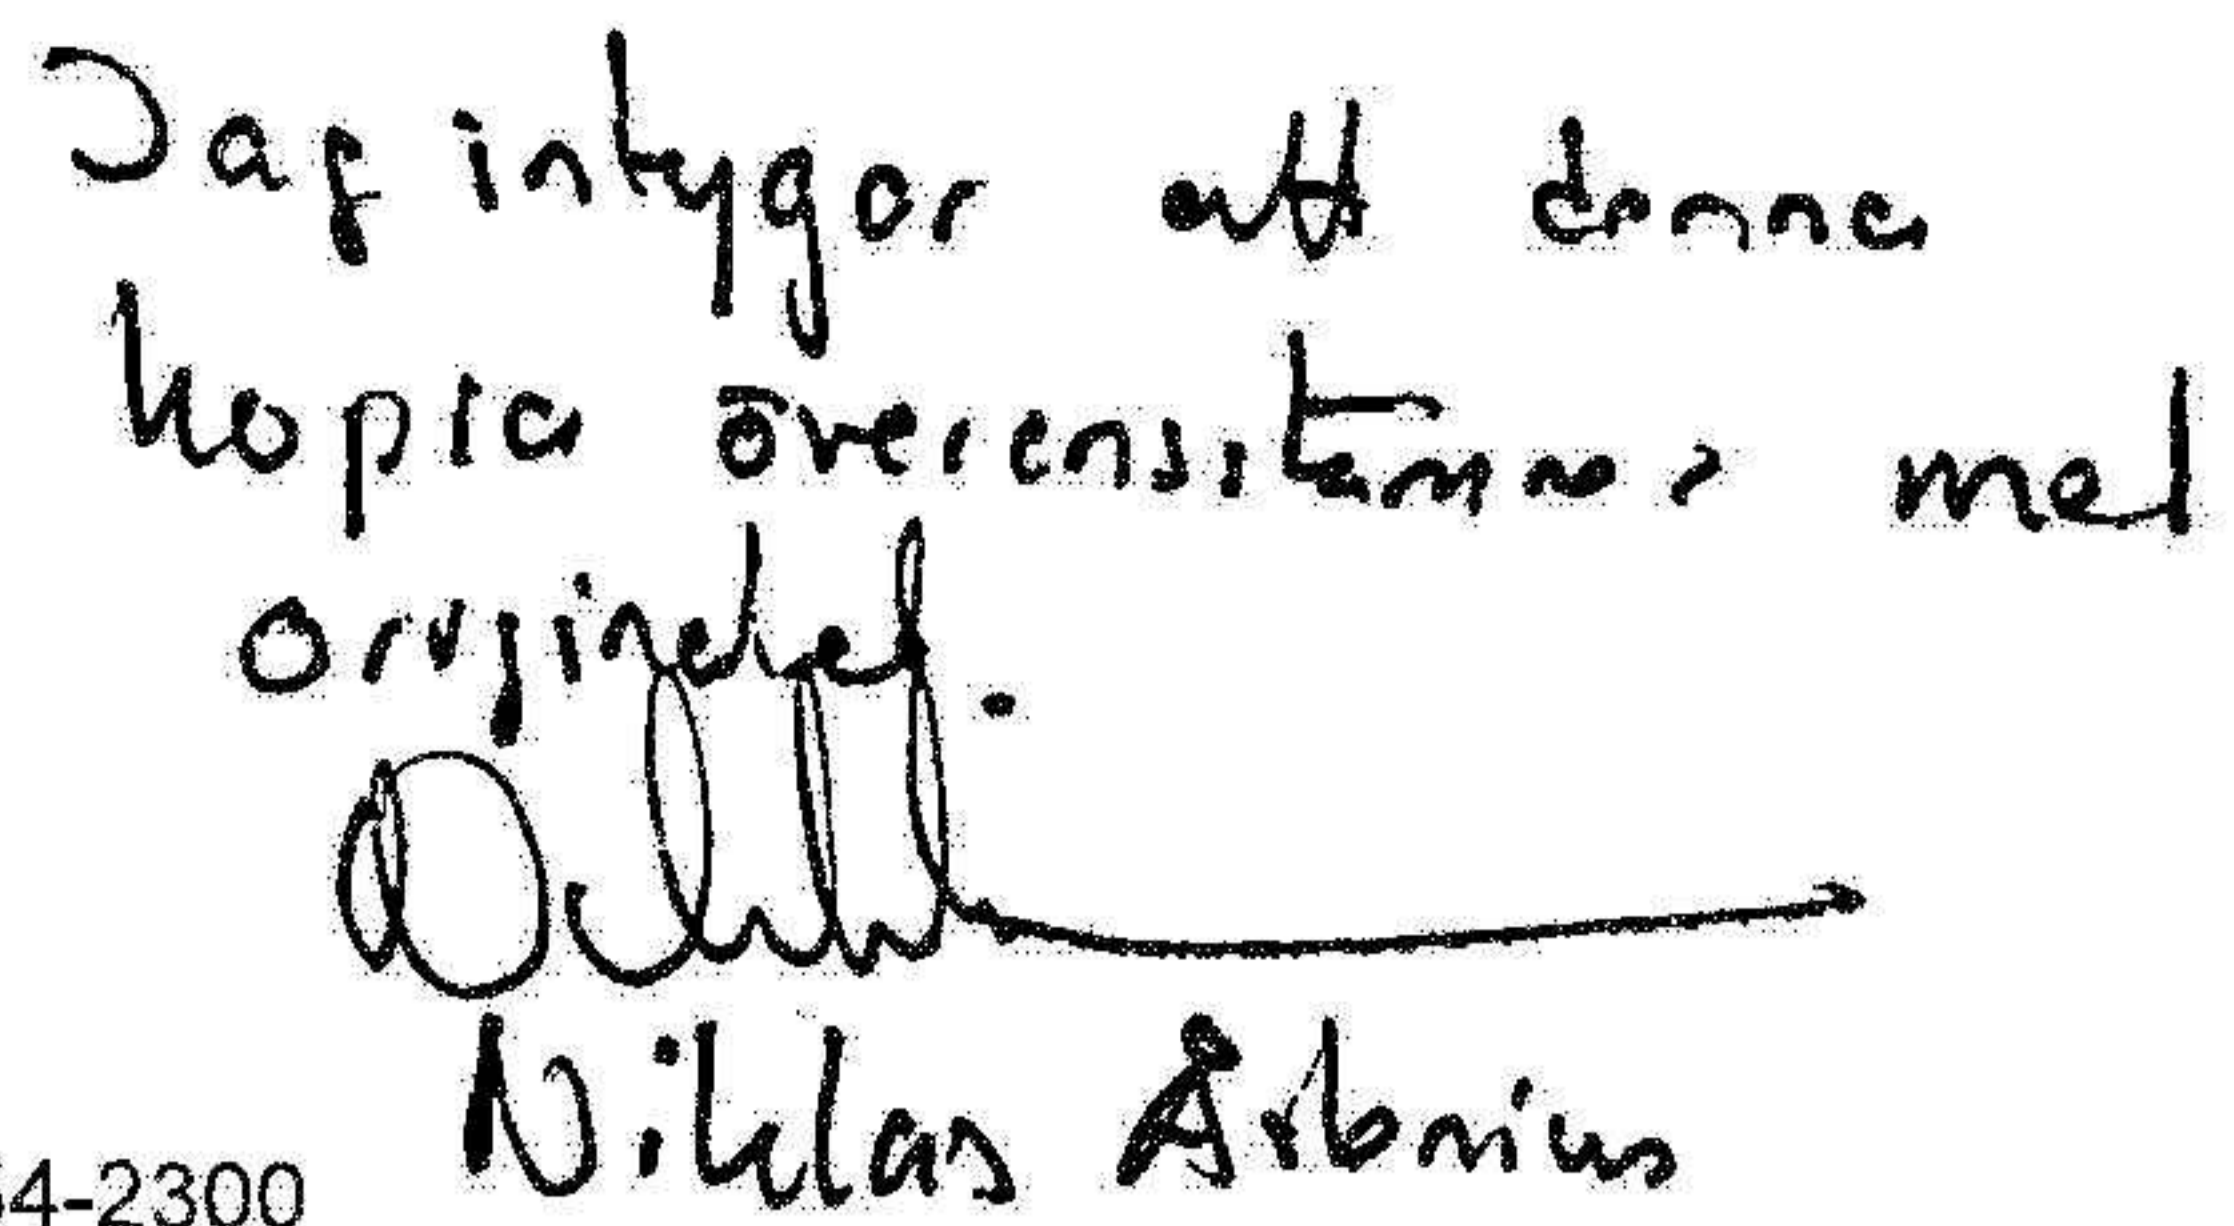 Jag intygar att denna
kopia överensstämmer med
originalet.
Niklas
4-2300